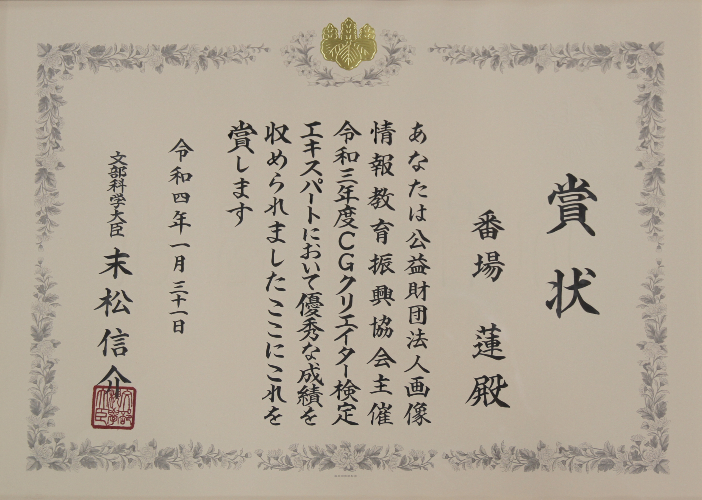 賞状
番場 蓮殿
あなたは公益財団法人画像
情報教育振興協会主催
令和三年度CGクリエイター検定
エキスパートにおいて優秀な成績を
収められましたここにこれを
賞します
令和四年一月三十一日
文部科学大臣 末松信介